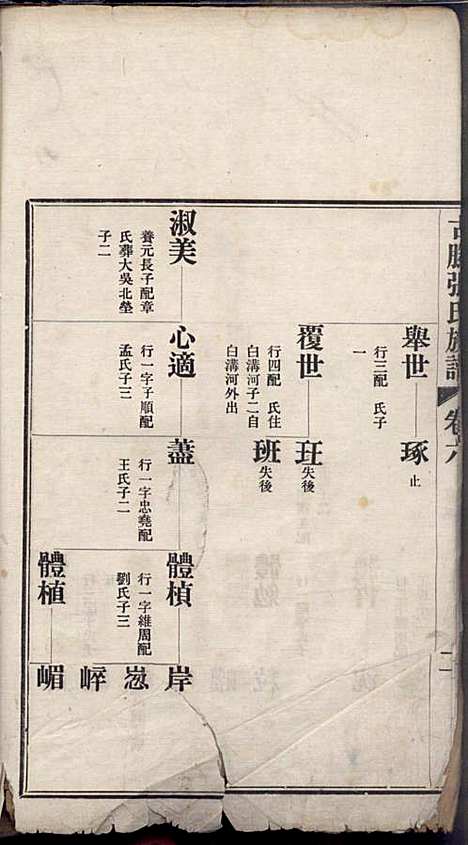 古滕張氏族譜 卷六
二
舉世
行三配 氏子
一
琢
止
覆世
行四配 氏住
白溝河子二自
白溝河外出
玨
失後
班
失後
淑美
養元長子配章
氏葬大吳北塋
子二
心適
行一字子順配
孟氏子三
藎
行一字忠堯配
王氏子二
體楨
行一字維周配
劉氏子三
岸
峊
崪
體植
嵋